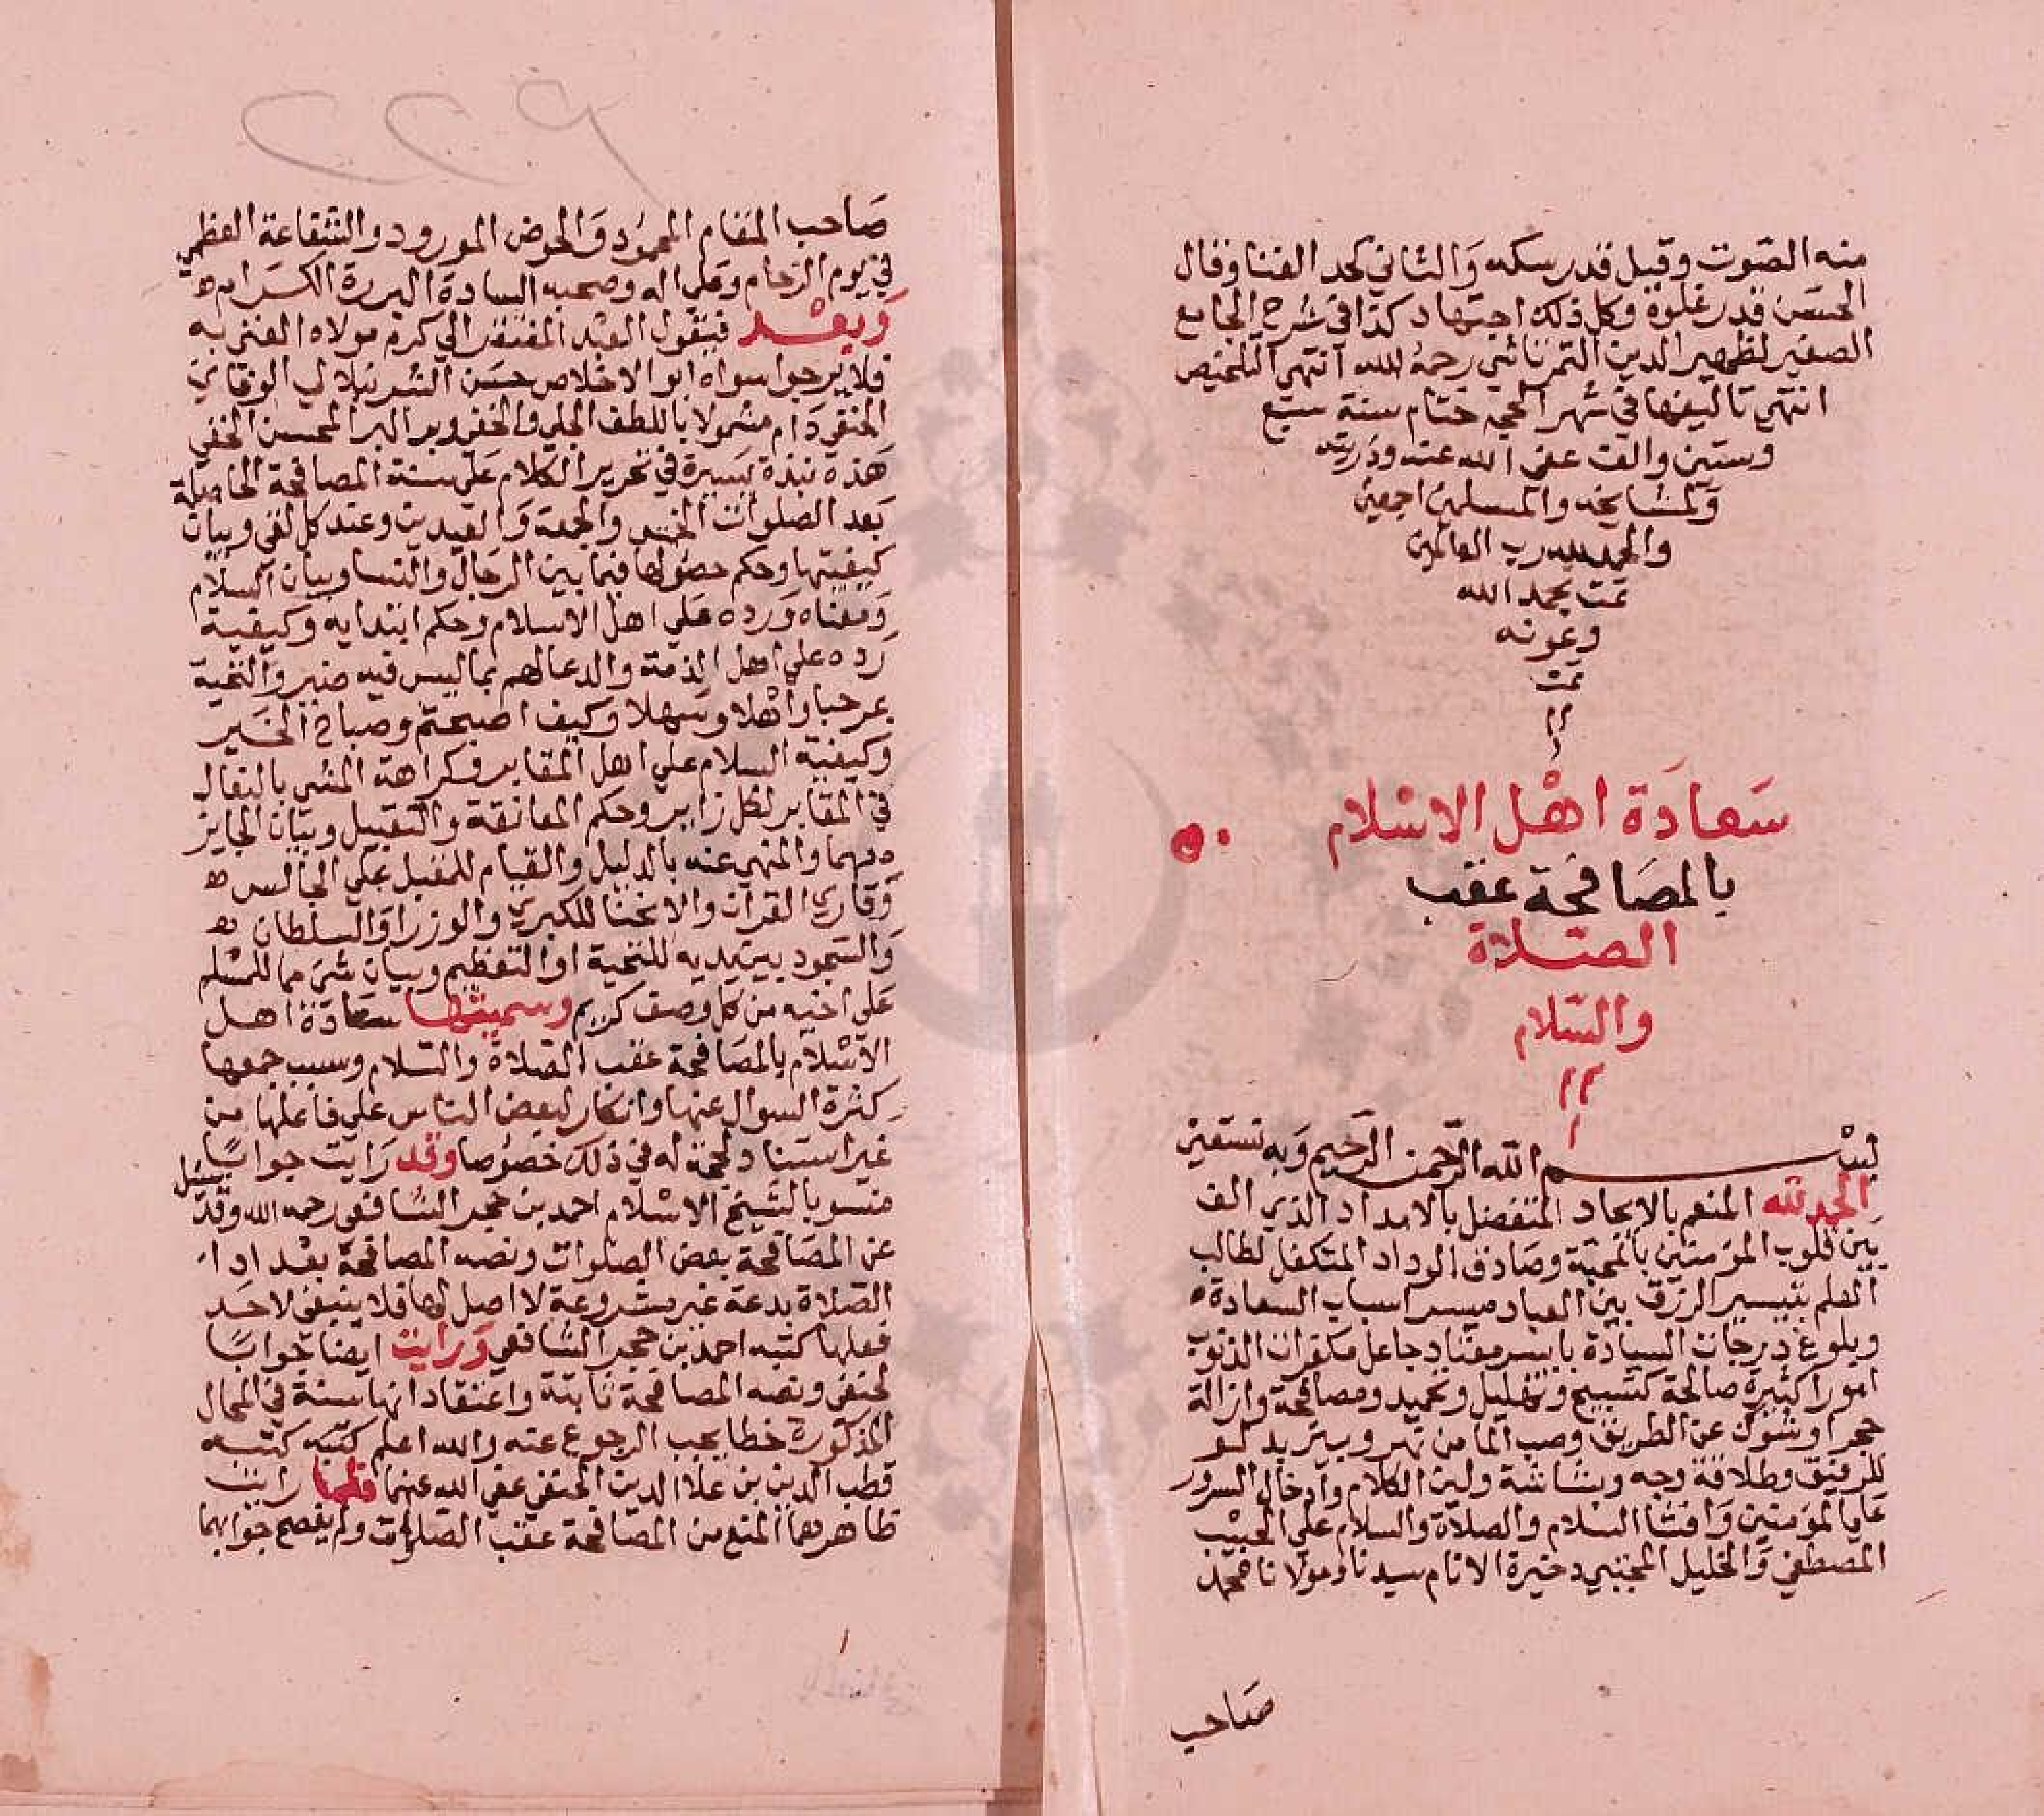 منه الصوت وقيل قدر سكه والثاني كحد الفنا وقال
الحسن قدر غلوة وكل ذلك اجتهاد كذا في شرح الجامع
الصغير لظهير الدين التمرتاشي رحمه الله انتهي التلخيص
انتهي تاليفها في شهر الحجة ختام سنة سبع
وستين والف عفي الله عنه وذريته
ولمشايخه والمسلمين اجمعين
والحمد لله رب العالمين
تمت بحمد الله
وعونه
تمت
سعادة اهل الاسلام
بالمصافحة عقب
الصلاة
والسلام
بسم الله الرحمن الرحيم وبه نستعين
الحمد لله المنعم بالايجاد المتفضل بالامداد الذي الف
بين قلوب المؤمنين بالمحبة وصادق الوداد المتكفل لطالب
العلم بتيسير الرزق بين العباد ميسر اسباب السعادة
وبلوغ درجات السيادة بايسر معتاد جاعل مكفرات الذنوب
امورا كثيرة صالحة كتسبيح وتهليل وتحميد ومصافحة وازالة
حجر او شوك عن الطريق وصب الما من نهر وبير بدلو
للرفيق وطلاقة وجه وبشاشة ولين الكلام وادخال السرور
علي المؤمنين وافشا السلام والصلاة والسلام علي الحبيب
المصطفي والخليل المجتبي ذخيرة الانام سيدنا ومولانا محمد
صاحب
٢٢٩
صاحب المقام المحمود والحوض المورود والشفاعة العظمي
في يوم الزحام وعلي اله وصحبه السادة البررة الكرام
وبعد فيقول العبد المفتقر الي كرم مولاه الغني به
فلا يرجوا سواه ابو الاخلاص حسن الشرنبلالي الوفائي
الحنفي دام مشمولا باللطف الجلي والخفي وبر البر المحسن الحفي
هذه نبذة يسيرة في تحرير الكلام علي سنة المصافحة الحاصلة
بعد الصلوات الخمس والجمعة والعيدين وعند كل لقي وبيان
كيفيتها وحكم حصولها فيما بين الرجال والنسا وبيان السلام
ومعناه ورده علي اهل الاسلام وحكم ابتدايه وكيفية
رده علي اهل الذمة والدعا لهم بما ليس فيه ضير والتحية
بمرحبا واهلا وسهلا وكيف اصبحتم وصباح الخير
وكيفية السلام علي اهل المقابر وكراهة المشي بالنعال
في المقابر لكل زاير وحكم المعانقة والتقبيل وبيان الجايز
منهما والمنهي عنه بالدليل والقيام للمقبل علي الجالس
وقاري القران والانحنا للكبري والوزرا والسلطان
والسجود بين يديه للتحية او التعظيم وبيان شي مما للمسلم
علي اخيه من كل وصف كريم وسميتها سعادة اهل
الاسلام بالمصافحة عقب الصلاة والسلام وسبب جمعها
كثرة السوال عنها وانكار لبعض الناس علي فاعلها من
غير استناد لحجة له في ذلك خصوصا وقد رايت جوابا
منسوبا لشيخ الاسلام احمد بن حجر الشافعي رحمه الله وقد سيل
عن المصافحة بعض الصلوات ونصه المصافحة بعد ادا
الصلاة بدعة غير مشروعة لا اصل لها فلا ينبغي لاحد
فعلها كتبه احمد بن حجر الشافعي ورايت ايضا جوابا
لحنفي ونصه المصافحة ثابتة واعتقاد انها سنة في المحال
المذكورة خطا يجب الرجوع عنه والله اعلم كتبه كتبه
قطب الدين بن علا الدين الحنفي عفي الله عنهما فلما رايت
ظاهرهما المنع من المصافحة عقب الصلوات ولم يفصح جوابهما